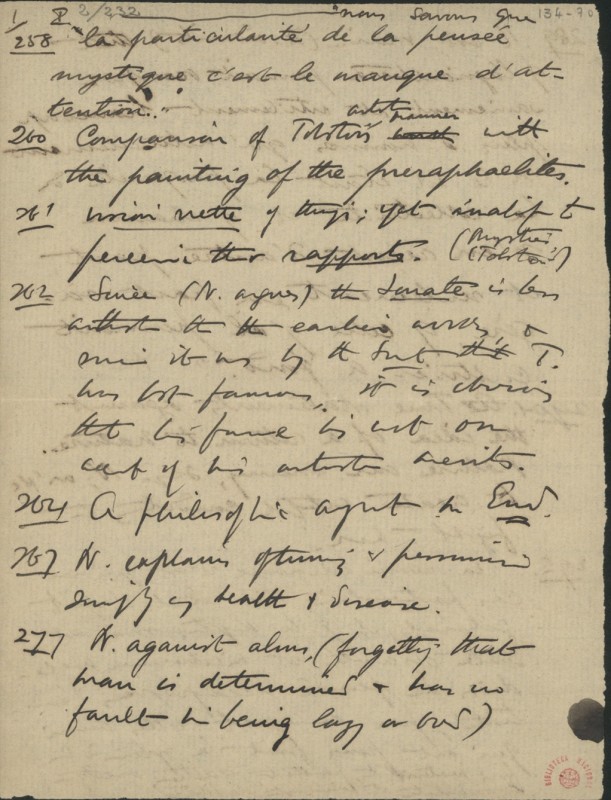 1 I 2/232 "nous savons que 134-70
258 "la particularité de la pensée
mystique c'est le manque d'at-
tention.."
artistic manner
260 Comparison of Tolstoi's with
the painting of the preraphaelites.
261 vision nette of things; yet inability to
perceive their rapports. (Mystics
(Tolstoi))
262 Since (N. argues) the Sonate is less
artistic than the earlier works, &
since it was by the Sonate that T.
has got famous, it is obvious
that his fame is not on
account of his artistic merits.
264 A philosophic agent in End.
267 N. explains optimism & pessimism
simply as health & disease.
277 N. against alms, (forgetting that
man is determined & has no
fault in being lazy or bad)
BIBLIOTECA